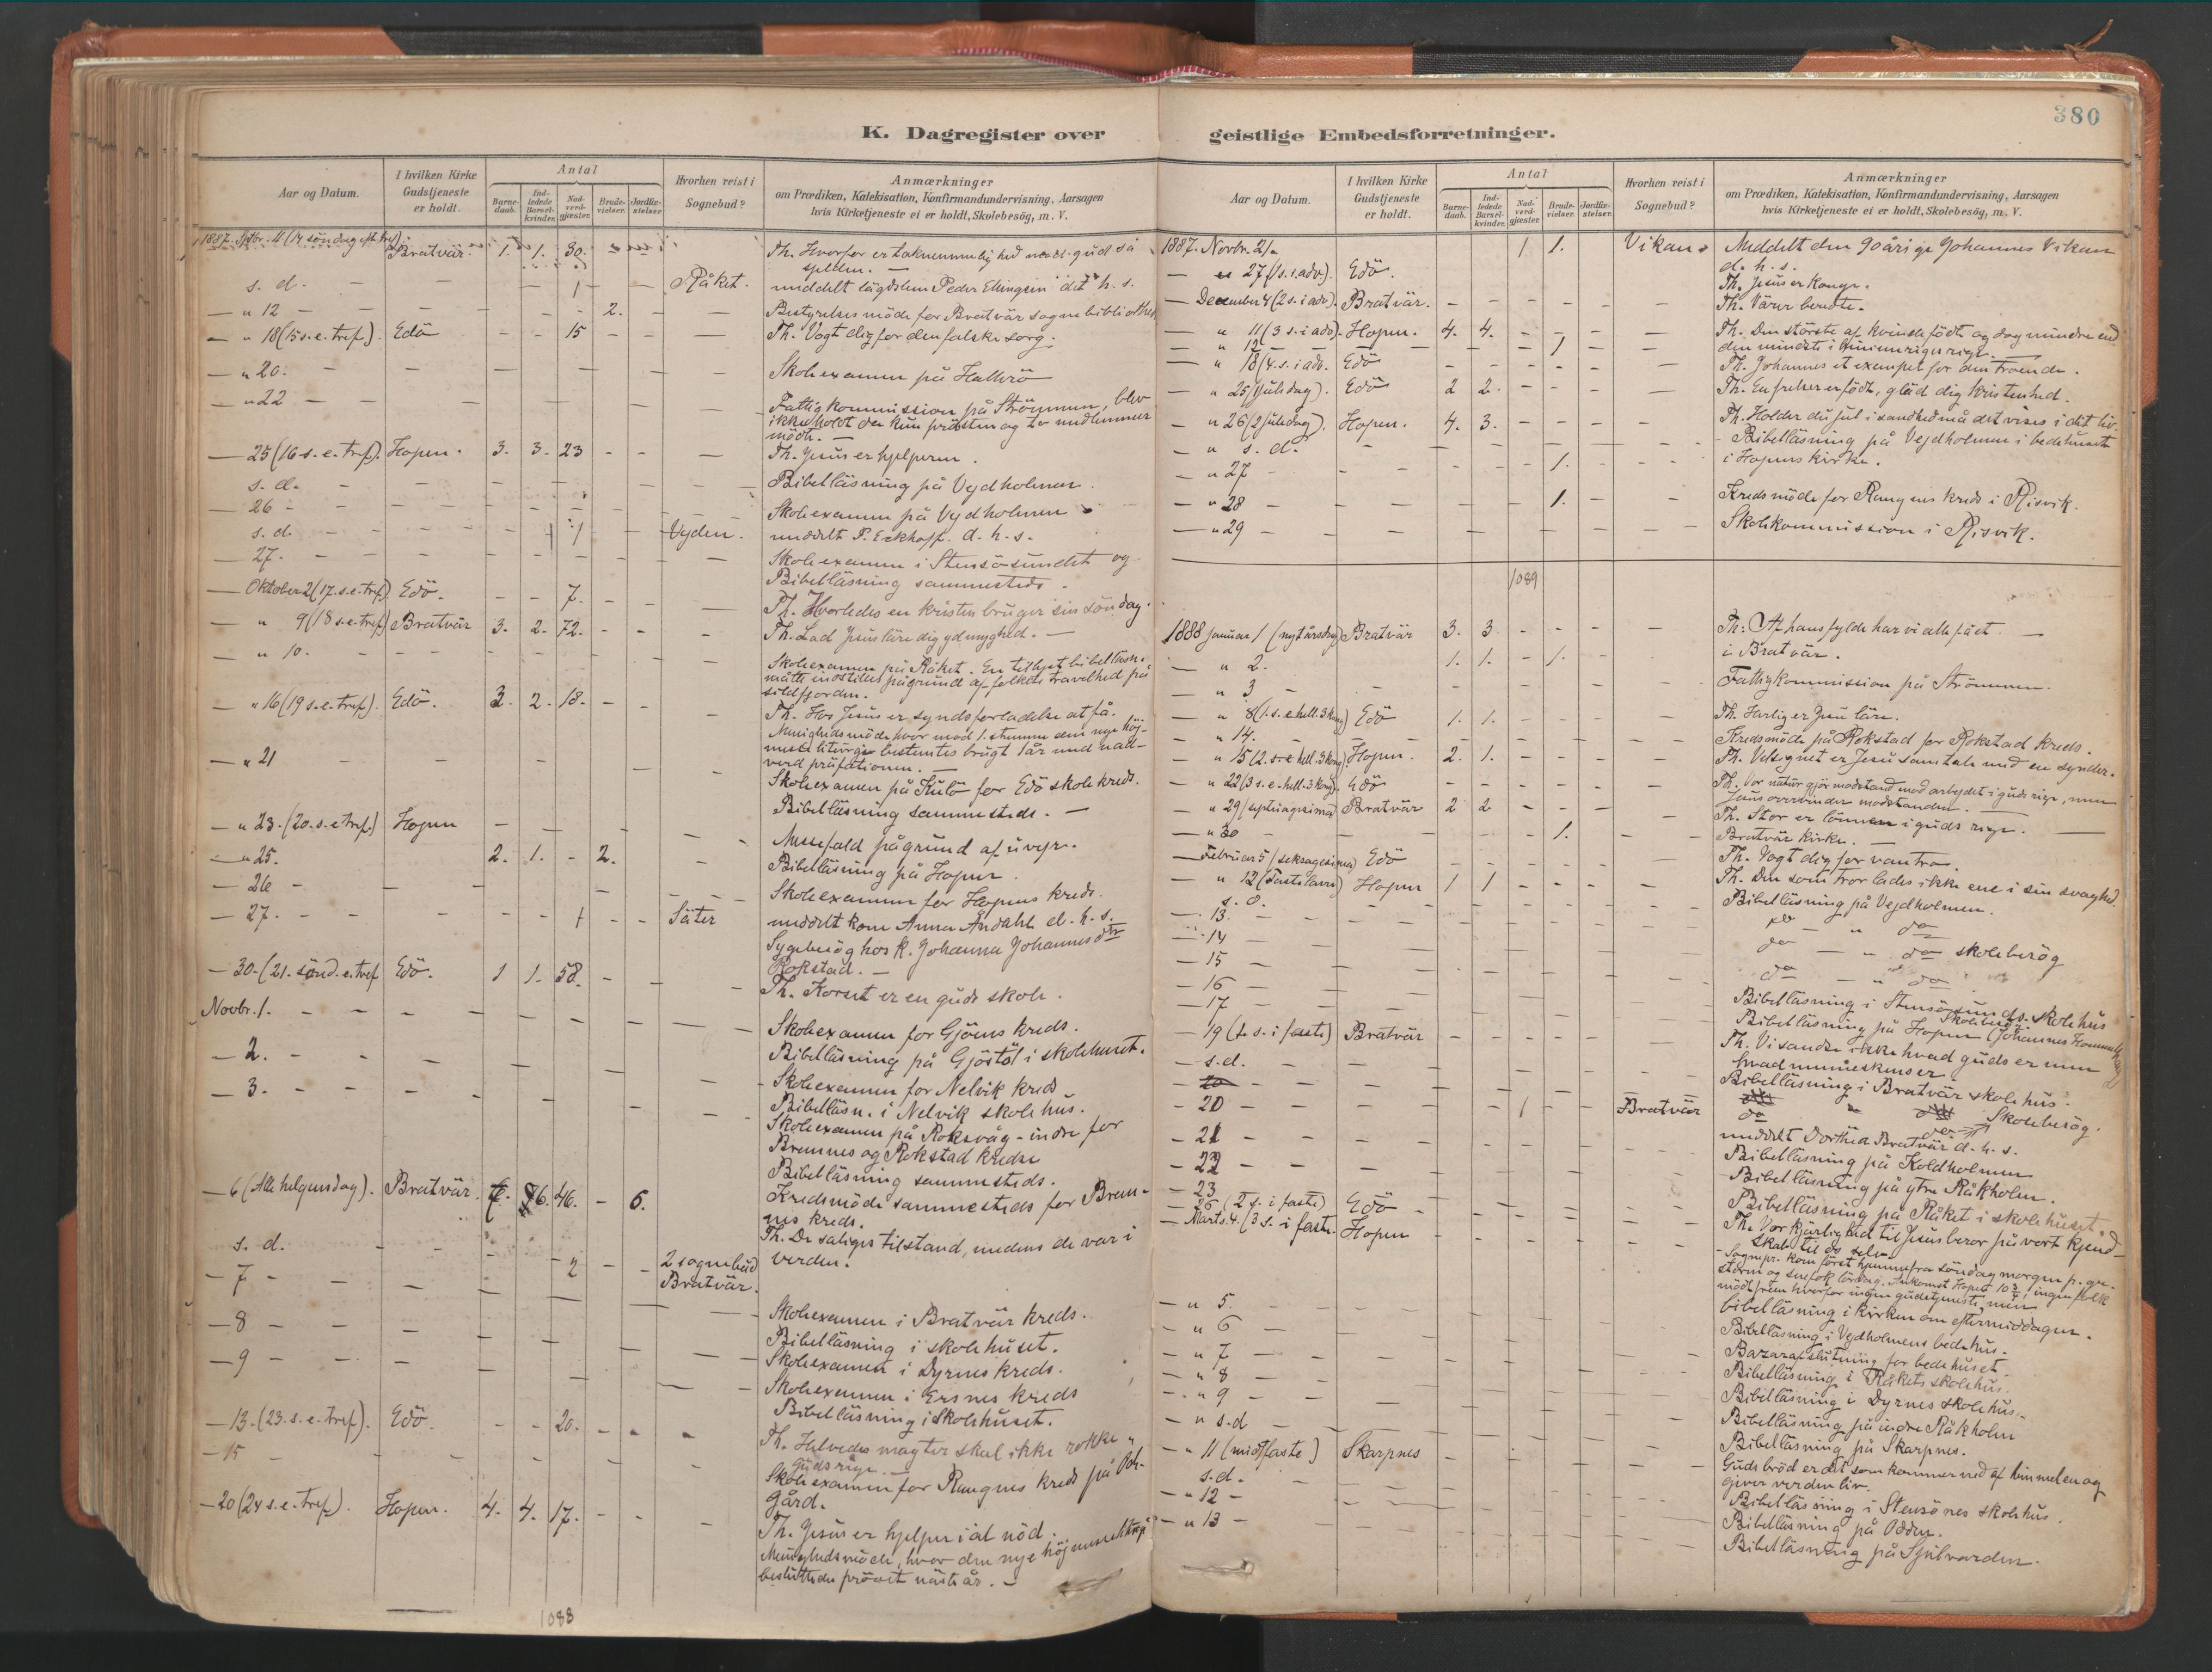 380
K. Dagregister over geistlige Embedsforretninger.
Aar og Datum.
I hvilken Kirke Gudstjeneste er holdt.
Antal
Barne-daab.
Ind-ledede Barsel-kvinder.
Nad-verd-gjæster.
Brude-vielser.
Jordfæ-stelser.
Hvorhen reist i Sognebud?
Anmærkninger
om Prædiken, Katekisation, Konfirmandundervisning, Aarsagen
hvis Kirketjeneste ei er holdt, Skolebesög, m. V.
1887. Septbr. 11 (14 söndag eft. tref.) Bratvär. 1. 1. 30. Th. Hvorfor er taknemmelighed mod gud så
sjelden. —
s. d. 1 Råket. meddelt lägdslem Peder Ellingsen d. h. s.
" 12 2. Bestyrelsesmöde for Bratvär sognebibliothek
" 18 (15 s. e. tref.) Edö 15 Th. Vogt dig for den falske sorg.
" 20. Skoleexamen på
" 22 Fattigkommission på Strömmen, blev
ikke holdt da kun prästen og to medlemmer
mödte. —
25 (16 s. e. tref.) Hopen. 3. 3. 23 Th. Jesus er hjelperen.
s. d. Bibelläsning på Vejdholmen.
26 Skoleexamen på Vejdholmen
s. d. 1 Vejden. meddelt P. Eckhoff. d. h. s.
27. Skoleexamen i Stensösundet og
Bibelläsning sammesteds.
Oktober 2 (17. s. e. tref.) Edö. 7. Th. Hvorledes en kristen bruger sin söndag.
" 9 (18 s. e. tref.) Bratvär 3. 2. 72. Th. Lad Jesus läre dig ydmyghed. —
" 10. Skoleexamen på Råket. En tillyst bibelläsn.
måtte indstilles på grund af folkets travelhed på
sildfjorden.
" 16 (19 s. e. tref.) Edö. 3. 2. 18. Th. Hos Jesus er syndsforladelse at få.
Menighedsmöde hvor mod 1. stemme den nye höj-
messeliturgi bestemtes brugt 1 år med nad-
verd präfationen. —
" 21 Skoleexamen på Kulö for Edö skolekreds.
Bibelläsning sammesteds. —
" 23. (20. s. e. tref.) Hopen Messefald på grund af uvejr.
" 25. 2. 1. - 2. Bibelläsning på Hopen.
26 Skoleexamen for Hopens kreds.
27. 1 Säter meddelt kone Anna Andahl d. h. s.
Sygebesög hos k. Johanna Johannesdtr
Rokstad. —
30. (21. sönd. e. tref Edö. 1 1. 58. Th. Korset er en guds skole.
Novbr. 1. Skoleexamen for Gjöens kreds.
Bibelläsning på Gjöstöl i skolehuset.
2. Skoleexamen for Nelvik kreds
Bibelläsn. i Nelvik skolehus.
3. Skoleexamen på Roksvåg-indre for
Bremnes og Rokstad kredse
Bibelläsning sammesteds.
Kredsmöde sammesteds for Brem-
nes kreds.
6 (Allehelgensdag). Bratvär. 6. 46. - 6. Th. De saliges tilstand, medens de var i
verden.
s. d. 2 2 sognebud
Bratvär.
7 Skoleexamen i Bratvär kreds.
Bibelläsning i skolehuset.
8 Skoleexamen i Dyrnes kreds.
9 Skoleexamen i Ersnes kreds
Bibelläsning i Skolehuset.
13. (23. s. e. tref.). Edö. 20. Th. Helvedes magter skal ikke rokke
Guds rige. —
15 Skoleexamen for Rangnes kreds på
gård.
20 (24 s. e. tref.). Hopen. 4. 4. 17. Th. Jesus er hjelper i al nöd.
Menighedsmöde, hvor den nye höjmesseliturgi
besluttedes prövet näste år. —
1088
Aar og Datum.
I hvilken Kirke Gudstjeneste er holdt.
Antal
Barne-daab.
Ind-ledede Barsel-kvinder.
Nad-verd-gjæster.
Brude-vielser.
Jordfæ-stelser.
Hvorhen reist i Sognebud?
Anmærkninger
om Prædiken, Katekisation, Konfirmandundervisning, Aarsagen
hvis Kirketjeneste ei er holdt, Skolebesög, m. V.
1887. Novbr. 21. 1 1. Vikan. Meddelt den 90 årige Johannes Vikan
d. h. s.
27 (1 s. i adv). Edö. Th. Jesus er konge.
December 4 (2 s. i adv). Bratvär. Th. Värer beredte.
" 11 (3 s. i adv). Hopen. 4. 4. Th. Den störste af kvinde födt og dog mindre end
den mindste i himmeriges rige.
" 12 1
" 18 (4. s. i adv. Edö Th. Johannes et exempel for den troende.
" 25 (1 juledag). Edö 2 2. Th. En frelser er födt, gläd dig kristenhed.
" 26 (2 juledag). Hopen. 4. 3. Th. Holder du jul i sandhed må det vises i dit liv.
" s. d. Bibelläsning på Vejdholmen i bedehuset
" 27 1. i Hopens kirke.
" 28 1. Kredsmöde for Rangnes kreds i Risvik.
" 29 Skolekommission i Risvik.
1089
1888 Januar 1 (nytårsdag) Bratvär 3. 3. Th: Af hans fylde har vi alle fået. —
" 2. 1. 1. - 1. i Bratvär.
" 3 Fattigkommission på Strömmen.
" 8 (1. s. e. hell. 3 kong) Edö 1. 1. Th. Herlig er Jesu läre.
" 14. Kredsmöde på Rokstad for Rokstad kreds.
" 15 (2. s. e. hell. 3 kong) Hopen. 2. 1. Th. Velsignet er Jesu samtale med en synder.
" 22 (3 s. e. hell. 3 kong). Edö Th. Vor natur gjör modstand mod arbejdet i guds rige, men
Jesus overvinder modstanden.
" 29 (septuagesima) Bratvär 2 2 Th. Stor er lönnen i guds rige.
" 30 1. Bratvär kirke. —
Februar 5 (seksagesima) Edö Th. Vogt dig for vantro.
" 12 (Fastelavn) Hopen 1 1 Th. Den som tror lades ikke ene i sin svaghed.
s. d. Bibelläsning på Vejdholmen.
13. do " do
14 do — " do skolebesög
15 do — " do
16 Bibelläsning i Stensösunds skolehus
Skolebesög
17 Bibelläsning på Hopen (Johannes
19 (1. s. i faste) Bratvär Th. Vi sandse ikke hvad guds er men
hvad menneskens er
s. d. Bibelläsning i Bratvär skolehus.
20 1 Bratvär do do Skolebesög.
meddelt Dorthea Bratvär d. h. s.
21 Bibelläsning på Koldholmen
22 Bibelläsning på ytre Råkholm.
23 Bibelläsning på Råket i skolehuset
26 (2 s. i faste) Edö Th. Vor kjärlighed til Jesus beror på vort kjend-
skab til os selv.
Marts 4. (3 s. i faste. Hopen Sognepr. kom först hjemmefra söndag morgen p. gr.
storm og snefok lördag. Ankomst Hopen 10¾, ingen folk
mödt frem hvorfor ingen gudstjeneste, men
bibelläsning i kirken om eftermiddagen.
" 5. Bibelläsning i Vejdholmens bedehus.
" 6 Bazarafslutning for bedehuset
" 7 Bibelläsning i Råkets skolehus.
" 8 Bibelläsning i Dyrnes skolehus.
" 9 Bibelläsning på indre Råkholm
" s. d Bibelläsning på Skarpnes.
" 11 (midfaste) Skarpnes Guds bröd er det som kommer ned af himmelen og
giver verden liv.
s. d. Bibelläsning i Stensönes skolehus.
" 12 Bibelläsning på Odden.
" 13 Bibelläsning på